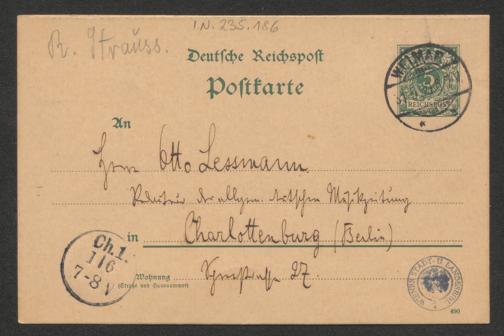 I.N. 235.186
R. Strauss.
Deutsche Reichspost
Postkarte
WEIMAR
5
REICHSPOST
An
Herrn Otto Lessmann
Redacteur der allgem. deutschen Musikzeitung
in Charlottenburg (Berlin)
Wohnung
(Straße und Hausnummer)
Spreestrasse 27.
Ch.1.
1/6
7-8 V
WIENER STADT-U. LANDESBIBL.